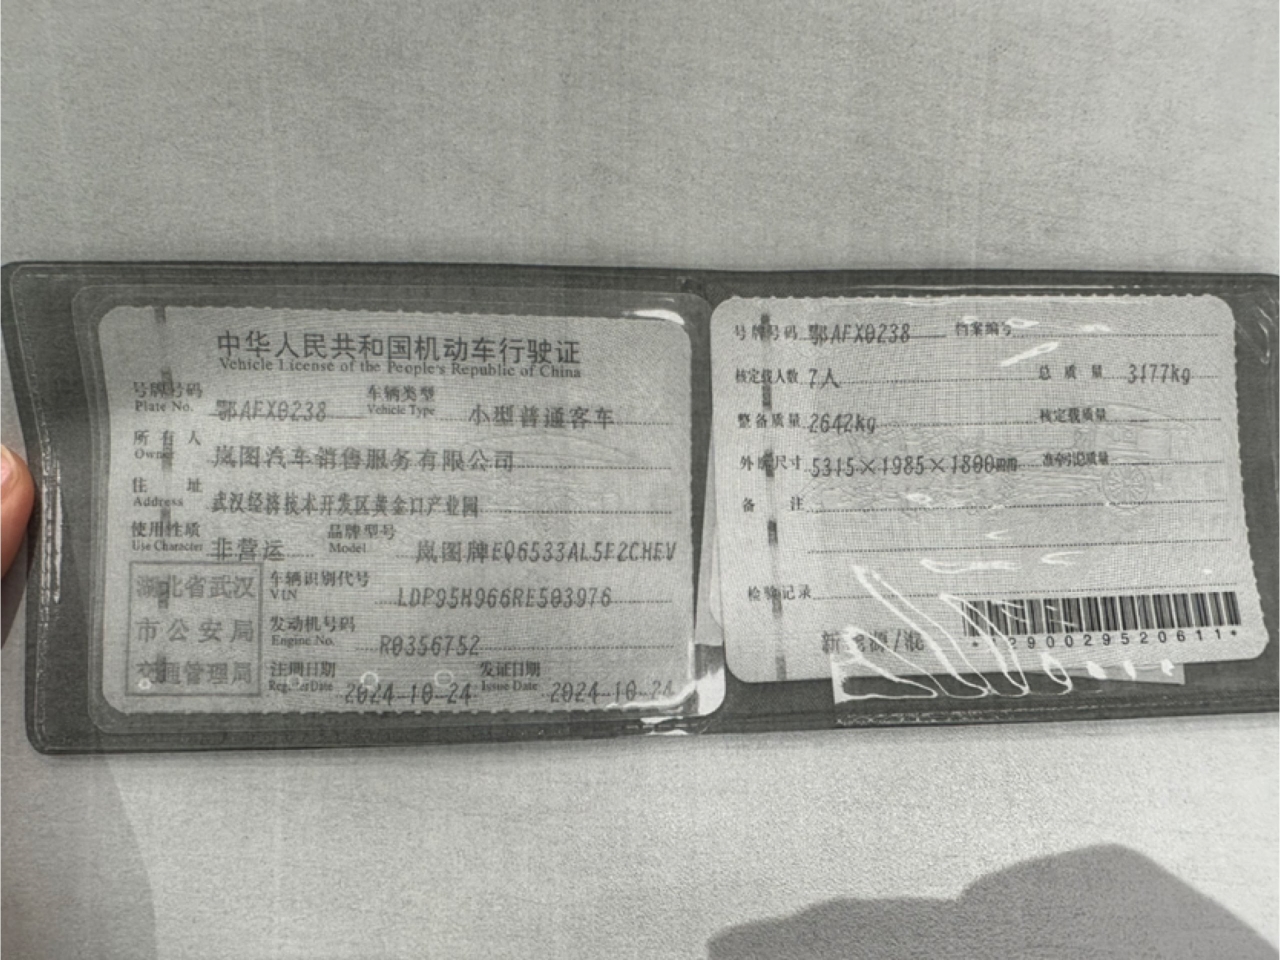 中华人民共和国机动车行驶证
Vehicle License of the People's Republic of China
号牌号码 Plate No. 鄂AFX0238 车辆类型 Vehicle Type 小型普通客车
所有人 Owner 岚图汽车销售服务有限公司
住址 Address 武汉经济技术开发区黄金口产业园
使用性质 Use Character 非营运 品牌型号 Model 岚图牌EQ6533AL5F2CHEV
湖北省武汉
市公安局
交通管理局
车辆识别代号 VIN LDP95H966RE503976
发动机号码 Engine No. R0356752
注册日期 Register Date 2024-10-24 发证日期 Issue Date 2024-10-24
号牌号码 鄂AFX0238 档案编号
核定载人数 7人 总质量 3177kg
整备质量 2642kg 核定载质量
外廓尺寸 5315×1985×1800mm 准牵引总质量
备注
检验记录
新能源/混
*1290029520611*